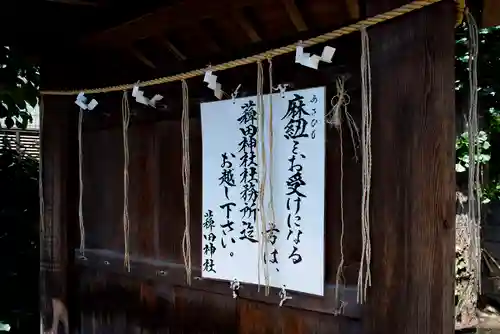 麻紐をお受けになる
あさひも
方は、
薭田神社社務所迄
お越し下さい。
薭田神社